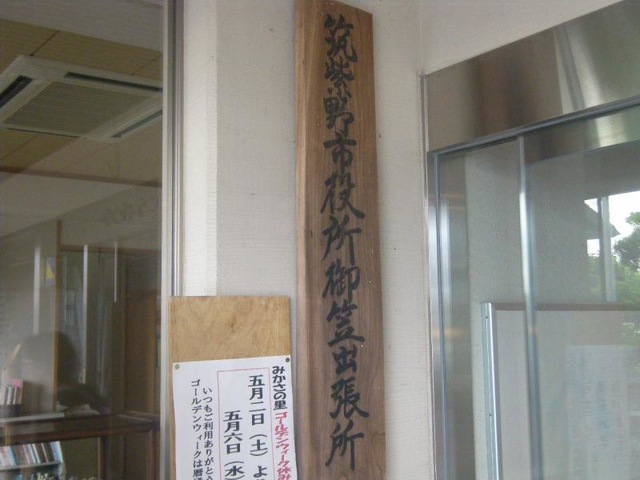 筑紫野市役所御笠出張所
みかさの里 ゴールデンウィーク休み
五月二日（土）よ
五月六日（水）
いつもご利用ありがとう
ゴールデンウィークは暦